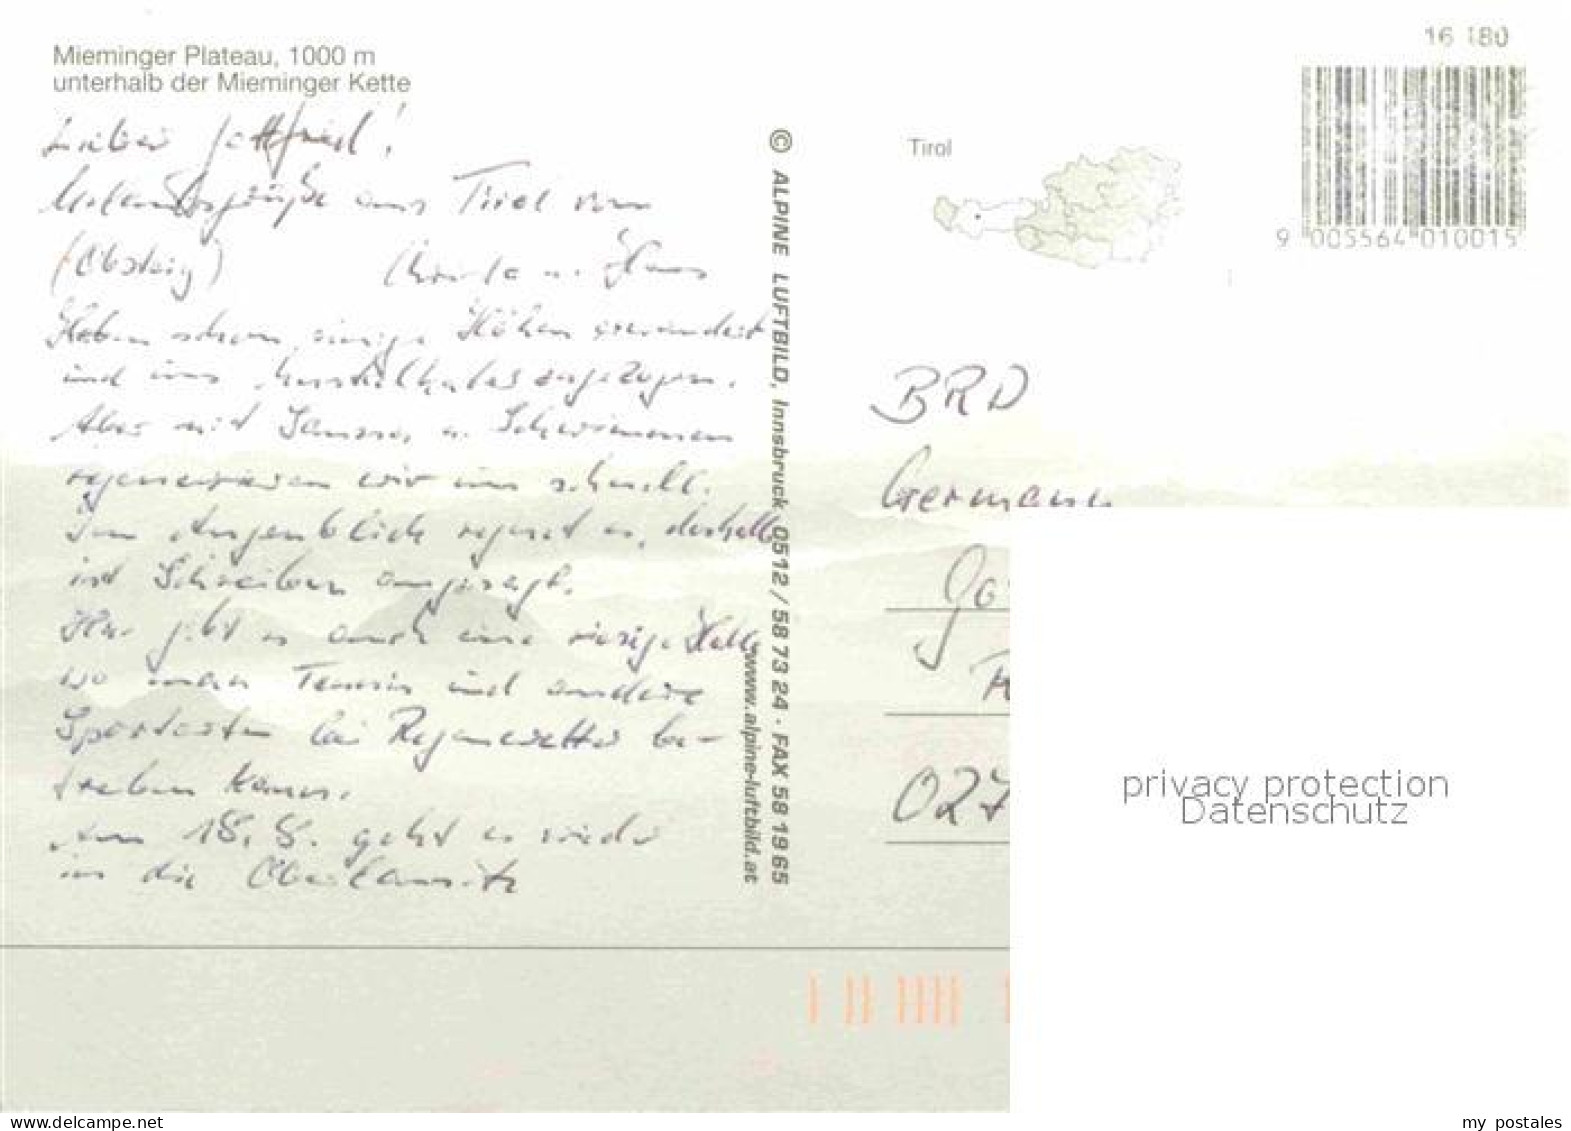 Mieminger Plateau, 1000 m
unterhalb der Mieminger Kette
Lieber Gottfried!
Urlaubsgrüße aus Tirol von
(Obsteig)
Christa u. Klaus
Haben schon einige Höhen erwandert
und uns Muskelkater zugezogen.
Aber mit Sauna u. Schwimmen
regenerieren wir uns schnell.
Im Augenblick regnet es, deshalb
ist Schreiben angesagt.
Hier gibt es auch eine riesige Halle
wo man Tennis und andere
Sportarten bei Regenwetter be-
treiben kann.
Am 18.8. geht es wieder
in die Oberlausitz
© ALPINE LUFTBILD, Innsbruck, 0512 / 58 73 24 · FAX 58 19 65
www.alpine-luftbild.at
Tirol
16 180
9 005564 010015
BRD
Germany
027
privacy protection
Datenschutz
www.delcampe.net
my_postales